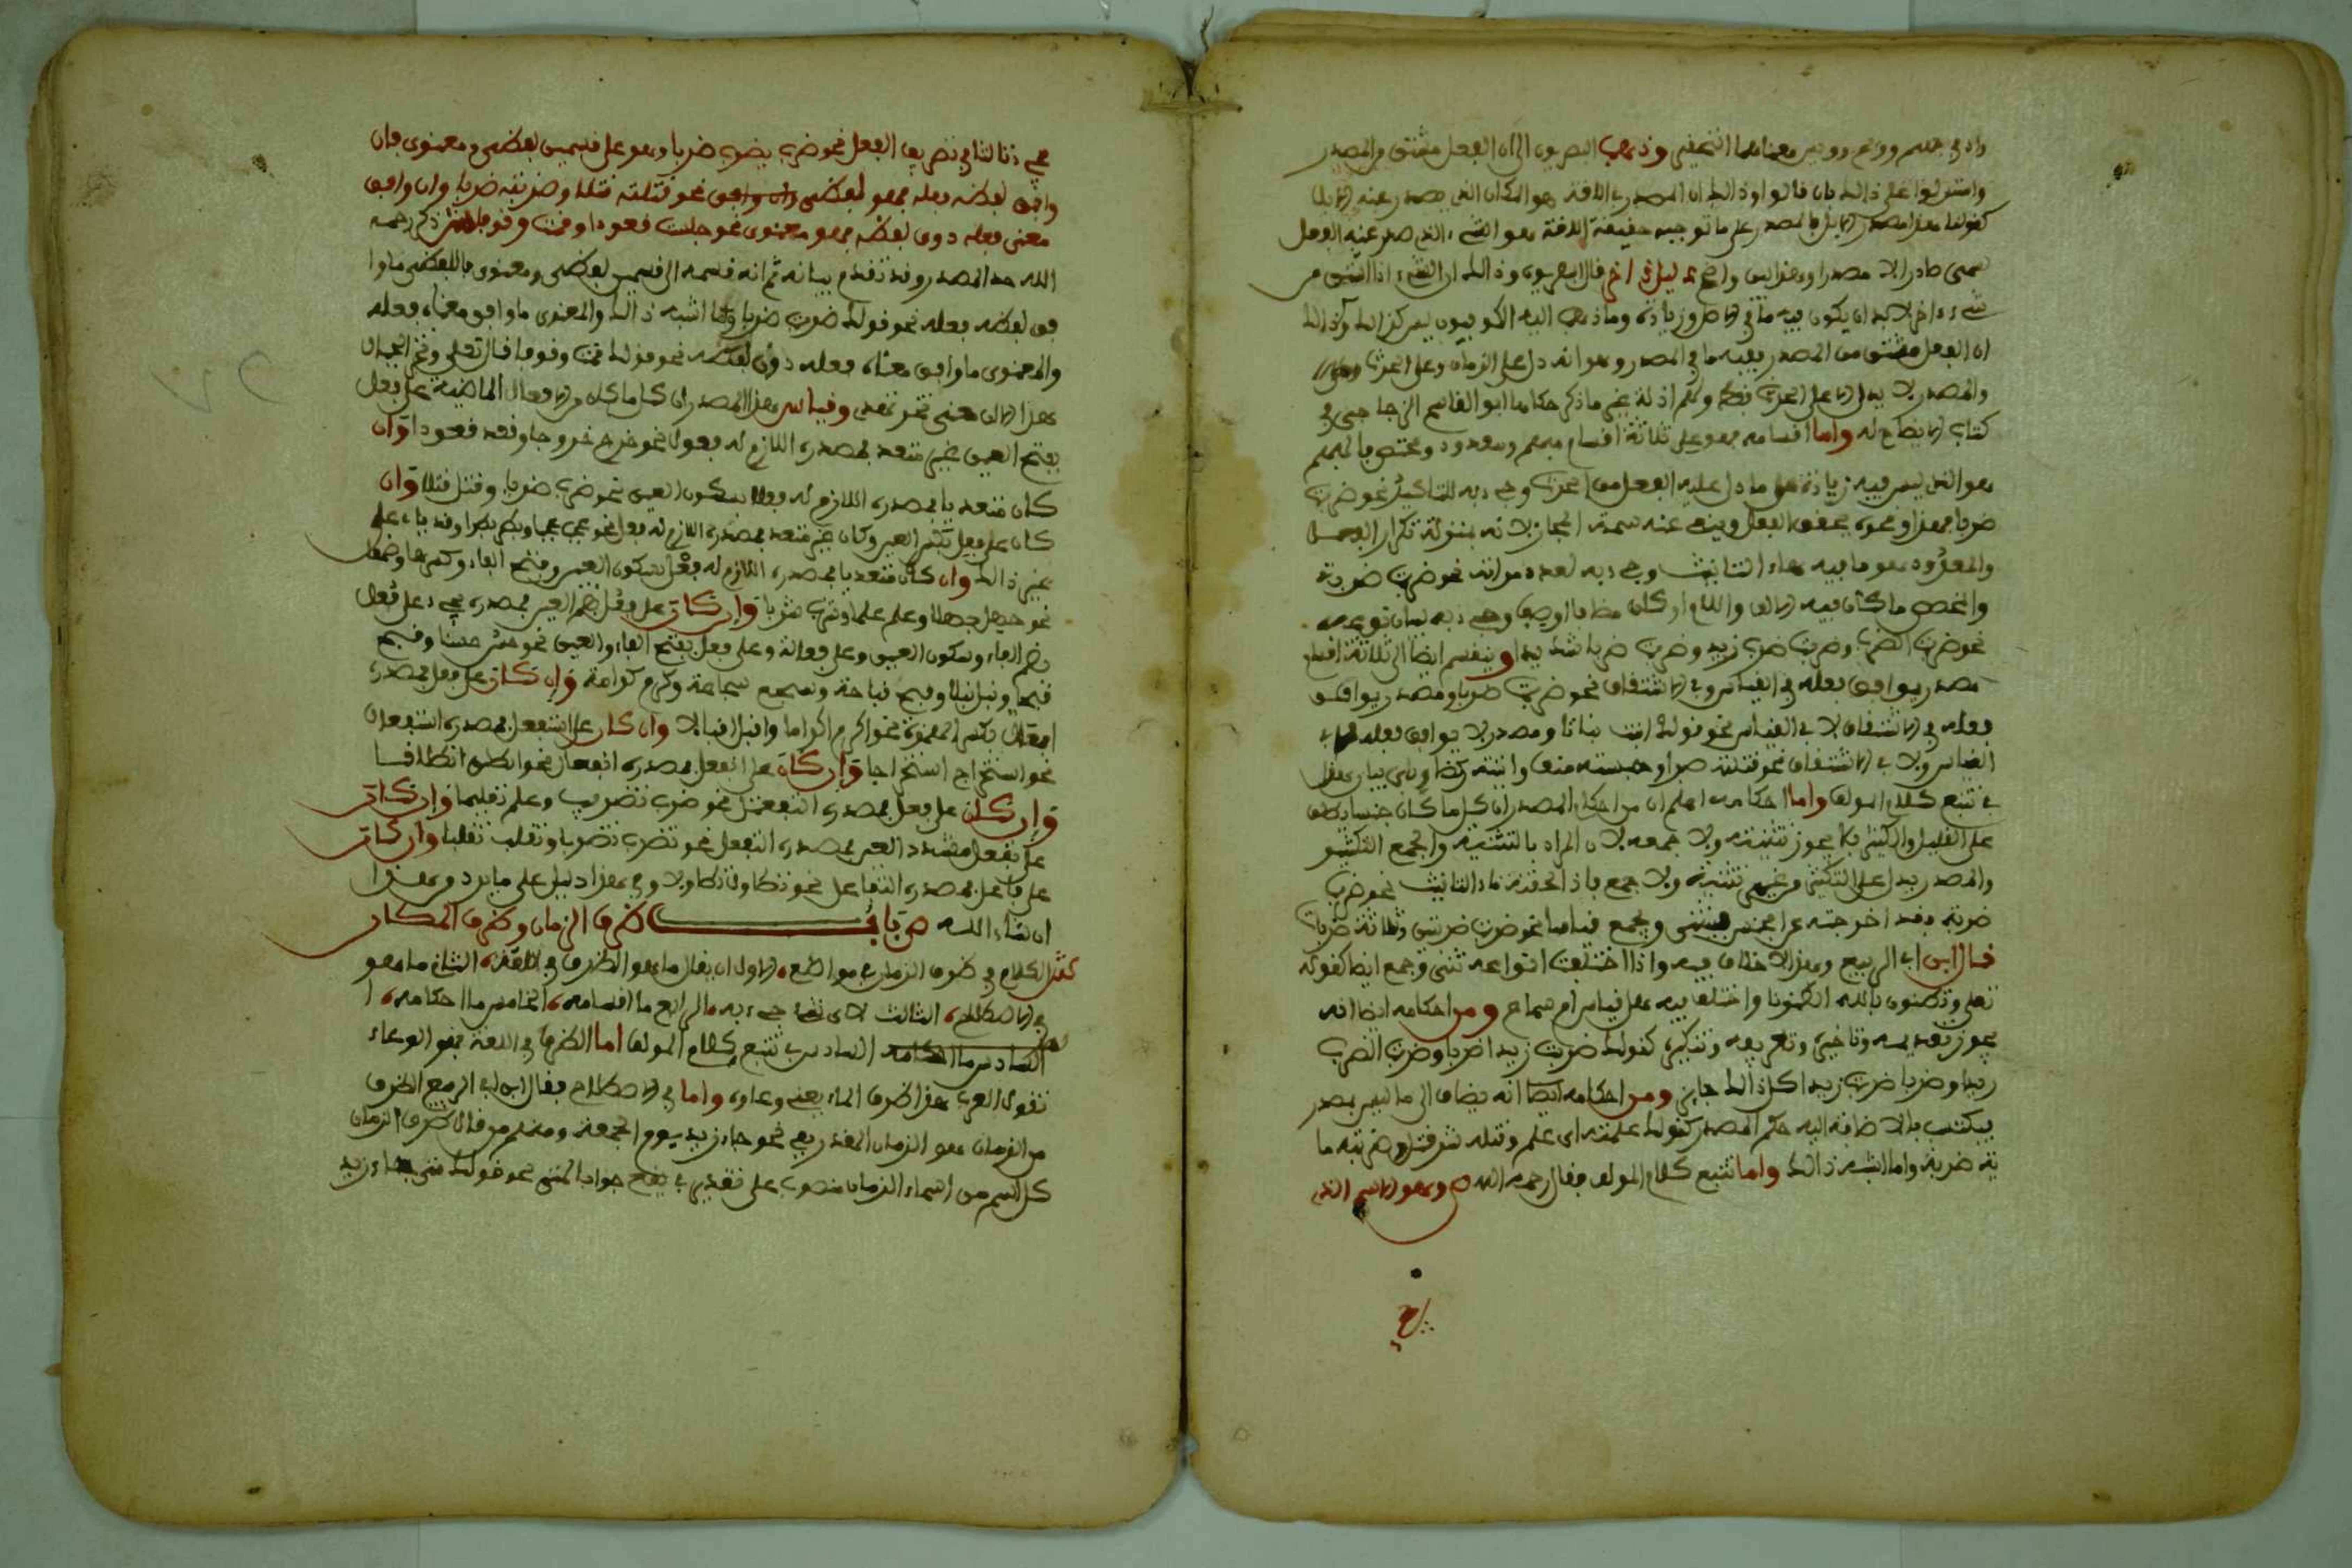 وذهب البصريون الى ان الفعل مشتق من المصدر
واستدلوا على ذالك بان قالوا وذالك ان المصدر في اللغة هو المكان الذي يصدر عنه
على ما توجبه حقيقة اللغة هو الشيء الذي صدر عنه الفعل
دليل اخر قال البصريون وذالك ان الشيء اذا اشتق من
شيء اخر لا بد ان يكون فيه ما في الاصل وزيادة وما ذهب اليه الكوفيون ليس كذالك
ان الفعل مشتق من المصدر ففيه ما في المصدر وهو انه دل على الزمان وعلى الحدث
والمصدر لا يدل الا على الحدث فقط ولهم ادلة غير ما ذكر حكاها ابو القاسم الزجاجي في
كتاب الايضاح له واما اقسامه فهو على ثلاثة اقسام مبهم ومعدود ومختص فالمبهم
هو الذي ليس فيه زيادة على ما دل عليه الفعل من الحدث وجيء به للتاكيد نحو ضربت
ضربا فهذا ونحوه يحقق الفعل وينفي عنه سمة المجاز لانه بمنزلة تكرار الفعل
والمعدود هو ما فيه هاء التانيث وجيء به لعدد مراته نحو ضربت ضربة
والمختص ما كان فيه الالف واللام او كان مضافا او وجيء به لبيان نوعه
نحو ضربت الضرب وضربت ضرب زيد وضربت ضربا شديدا وينقسم ايضا الى ثلاثة اقسام
مصدر يوافق فعله في القياس وفي الاشتقاق نحو ضربت ضربا ومصدر يوافق
فعله في الاشتقاق لا في القياس نحو قولك انبت نباتا ومصدر لا يوافق فعله في
القياس ولا في الاشتقاق نحو قتلته صبرا وحبسته منعا واتيته ركضا وياتي بيان هذا
في تتبع كلام المولف واما احكامه اعلم ان من احكام المصدر ان كل ما كان جنسا يطلق
على القليل والكثير فلا يجوز تثنيته ولا جمعه لان المراد بالتثنية والجمع التكثير
والمصدر يدل على التكثير من غير تثنية ولا جمع فاذا لحقته تاء التانيث نحو ضربت
ضربة فقد اخرجته عن الجنس فيثنى ويجمع قياسا نحو ضربت ضربتين وثلاثة ضربات
قال ابن ابي الربيع وهذا لا خلاف فيه واذا اختلفت انواعه ثنى وجمع ايضا كقوله
تعلى وتظنون بالله الظنونا واختلف فيه هل قياس ام سماع ومن احكامه ايضا انه
يجوز تقديمه وتاخيره وتعريفه وتنكيره كقولك ضربت زيدا ضربا وضربت الضرب
زيدا وضربا ضربت زيدا كل ذالك جايز ومن احكامه ايضا انه يضاف الى ما ليس بمصدر
فيكتسب بالاضافة اليه حكم المصدر كقولك علمته اي علم وقتله شر قتل وضربته ما
ية ضربة وما اشبه ذالك واما تتبع كلام المولف فقال رحمه الله ص وهو الاسم الذي
يجيء ثالثا في تصريف الفعل نحو ضرب يضرب ضربا وهو على قسمين لفظي ومعنوي فان
وافق لفظه فعله فهو لفظي نحو قتلته قتلا وضربته ضربا وان وافق
معنى فعله دون لفظه فهو معنوي نحو جلست قعودا وقمت وقوفا ذكر رحمه
الله حد المصدر وقد تقدم بيانه ثم انه قسمه الى قسمين لفظي ومعنوي فاللفظي ما وا
فق لفظه فعله نحو قولك ضربت ضربا وما اشبه ذالك والمعنوي ما وافق معناه فعله
والمعنوي ما وافق معناه فعله دون لفظه نحو قولك قمت وقوفا قال تعلى وتخر الجبال
هدا لان معنى تخر تنهد وقياس هذا المصدر ان كل ما كان من الافعال الماضية على فعل
بفتح العين غير متعد فمصدره اللازم له فعول نحو خرج خروجا وقعد قعودا وان
كان متعديا فمصدره اللازم له فعلا بسكون العين نحو ضرب ضربا وقتل قتلا وان
كان على فعل بكسر العين وكان غير متعد فمصدره اللازم له فعل نحو عجب عجبا وبطر بطرا وقد ياتي على
غير ذالك وان كان متعديا فمصدره اللازم له فعل بسكون العين وفتح الفاء وكسرها وضمها
نحو جهل جهلا وعلم علما وشرب شربا وان كان على فعل بضم العين فمصدره يجيء على فعل
بضم الفاء وسكون العين وعلى فعالة وعلى فعل بفتح الفاء والعين نحو حسن حسنا وقبح
قبحا ونبل نبلا وقبح قباحة وسمح سماحة وكرم كرامة وان كان على افعل فمصدره
افعال بكسر الهمزة نحو اكرم اكراما واقبل اقبالا وان كان على استفعل فمصدره استفعال
نحو استخرج استخراجا وان كان على انفعل فمصدره انفعال نحو انطلق انطلاقا
وان كان على فعل فمصدره التفعيل نحو ضرب تضريب وعلم تعليما وان كان
على تفعل مشدد العين فمصدره التفعل نحو تضرب تضربا وتقلب تقلبا وان كان
على فاعل فمصدره التفاعل نحو وفي هذا دليل على ما يرد وهذا
ان شاء الله ص باب ظرف الزمان وظرف المكان
الكلام في ظرف الزمان في مواضع الاول ان يقال ما هو الظرف في اللغة الثاني ما هو
في الاصطلاح الثالث لاي شيء جيء به الرابع ما اقسامه الخامس ما احكامه ا
لسادس في تتبع كلام المولف اما الظرف في اللغة فهو الوعاء
تقول العرب هذا ظرف الماء يعني وعاءه واما في الاصطلاح فقال ابن ابي الربيع الظرف
من الزمان هو الزمان المقدر بفي نحو جاء زيد يوم الجمعة ومنهم من قال ظرف الزمان
كل اسم من اسماء الزمان منصوب على تقدير في يقع جواب لمتى نحو قولك متى جاء زيد